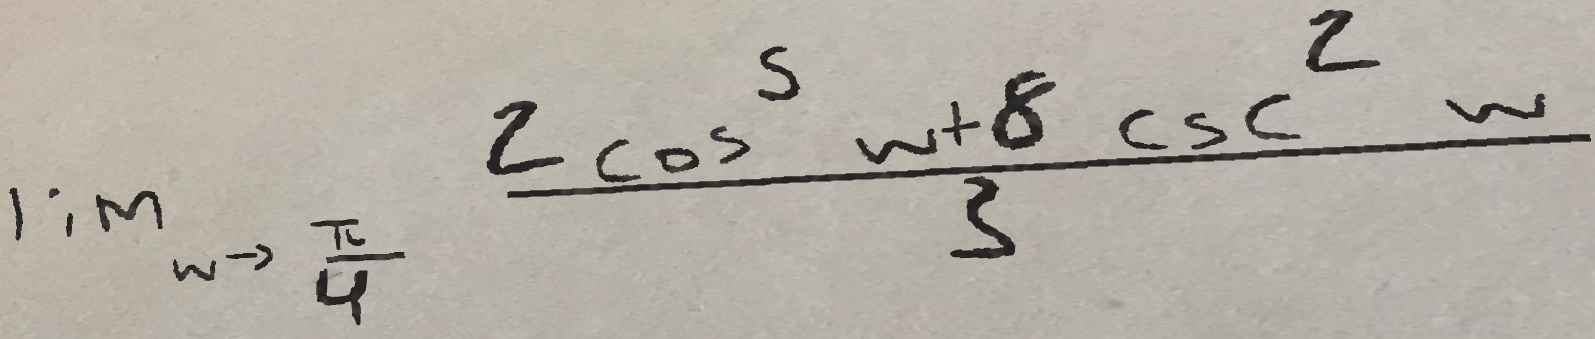 lim_{w→\frac{π}{4}} \frac{2 cos^5 w+8 csc^2 w}{3}